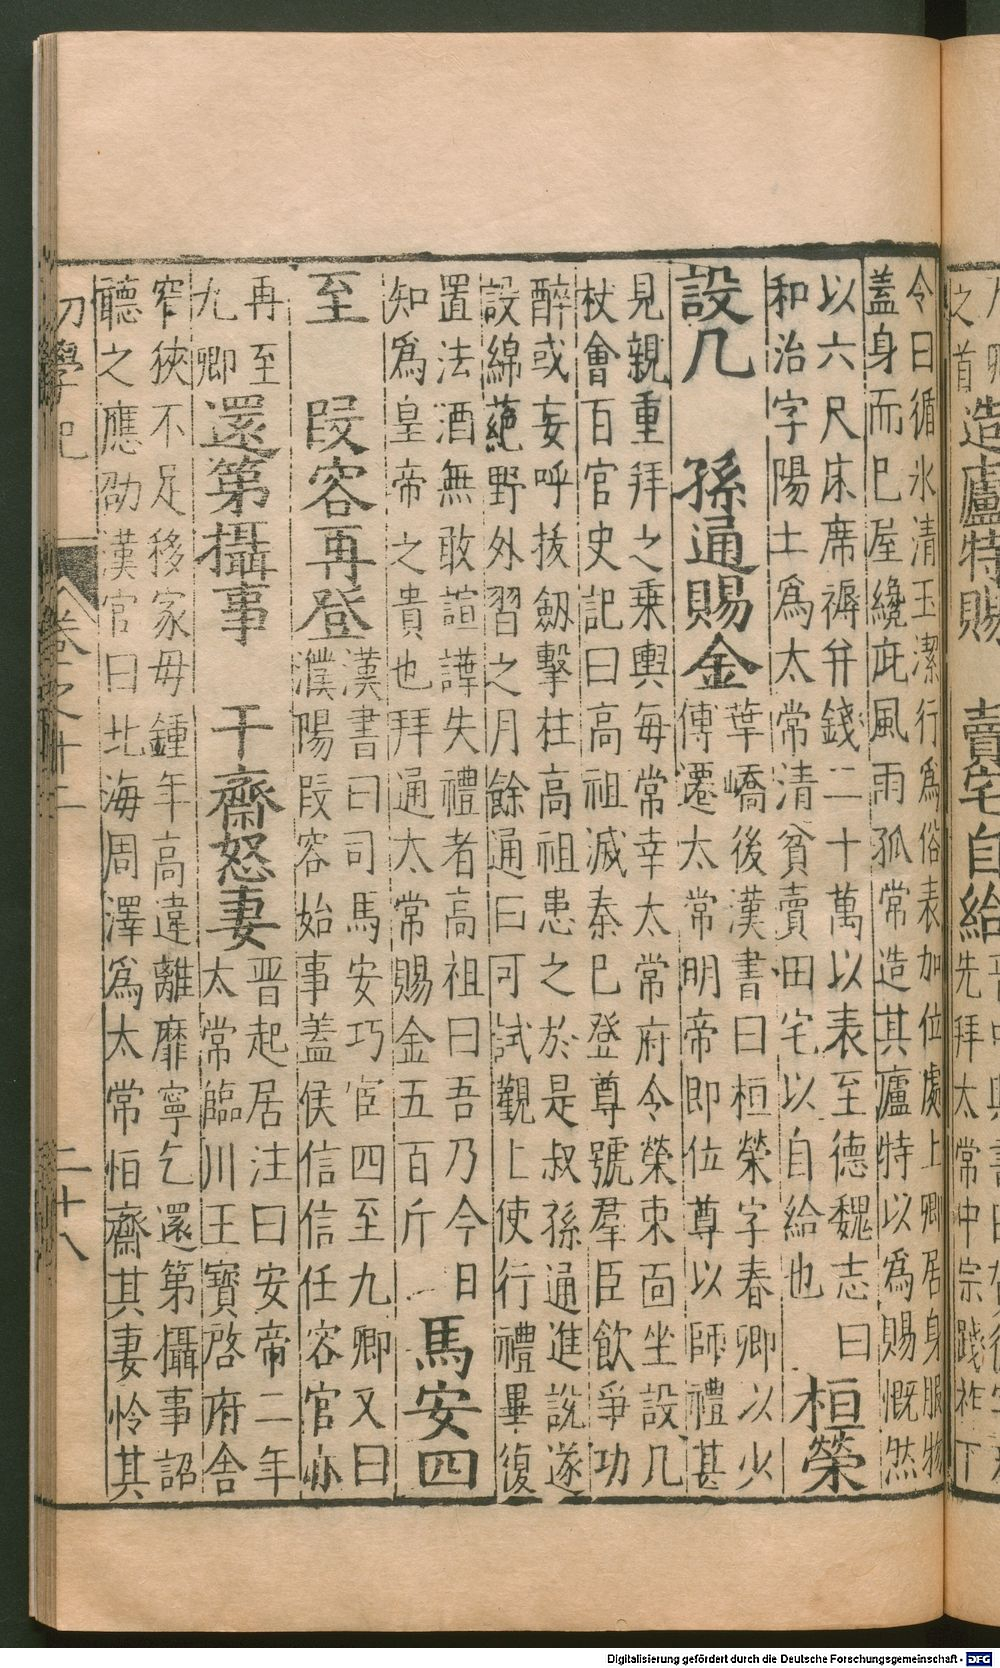 之首造廬特賜 賣宅自給先拜太常中宗踐祚下
令曰循氷清玉潔行爲俗表加位處上卿居身服物
蓋身而已屋纔庇風雨孤常造其廬特以爲賜慨然
以六尺床席褥幷錢二十萬以表至德魏志曰
和治字陽士爲太常清貧賣田宅以自給也
桓榮
設几 孫通賜金
華嶠後漢書曰桓榮字春卿以少
傅遷太常明帝即位尊以師禮甚
見親重拜之乗輿每常幸太常府令榮東面坐設几
杖會百官史記曰高祖滅秦已登尊號羣臣飲爭功
醉或妄呼拔劔擊柱高祖患之於是叔孫通進說遂
設綿蕝野外習之月餘通曰可試觀上使行禮畢復
置法酒無敢諠譁失禮者高祖曰吾乃今日
知爲皇帝之貴也拜通太常賜金五百斤
馬安四
至 段容再登
漢書曰司馬安巧宦四至九卿又曰
濮陽段容始事蓋侯信信任容官亦
再至
九卿
還第攝事 干齋怒妻
晋起居注曰安帝二年
太常臨川王寶啓府舍
窄狹不足移家毋鍾年高違離靡寧乞還第攝事詔
聽之應劭漢官曰北海周澤爲太常恒齋其妻怜其
初學記 卷之十二 二十八
Digitalisierung gefördert durch die Deutsche Forschungsgemeinschaft - DFG